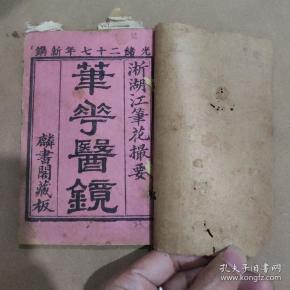 光緒二十七年新鐫
浙湖江筆花撮要
筆花醫鏡
麟書閣藏板
孔夫子旧书网